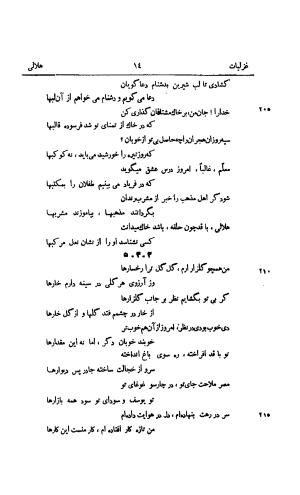 غزلیات ۱٤ هلالی
گشادی تا لب شیرین بدشنام دعا گویان
دعا می‌گویم و دشنام می خواهم از آن لبها
۲۰۵ خدارا ! جان من، بر خاك مشتاقان گذاری کن
که در خاك از تمنای تو شد فرسوده قالبها
سیه روزان هجران را چه حاصل بی تو از خوبان ؟
که روز تیره را خورشید می‌باید، نه کوکبها
معلم، غالباً، امروز درس عشق میگوید
که در فریاد می بینم طفلان را بمکتبها
شود گر اهل مذهب را خبر از مشرب رندان
بگردانند مذهبها ، بیاموزند مشربها
هلالی، با قد چون حلقه، باشد خاك میدانت
کسی نشناسد او را از نشان نعل مرکبها
۲۱۰ من همچو گلزار ارم، گل گل ترا رخسارها
وز آرزوی هر گلی در سینه دارم خارها
گر بی تو بگشایم نظر بر جانب گلزارها
از خار در چشمم فتد گلها و از گل خارها
دی خوب بودی در نظر، امروز از آن هم خوب تر
خوبند خوبان دگر، اما نه این مقدارها
تو با قد افراخته ، ره سوی باغ انداخته
سرو از خجالت ساخته جا در پس دیوارها
مصر ملاحت جای تو ، در چارسو غوغای تو
تو یوسف و سودای تو سود همه بازارها
۲۱۵ سر در رهت بنهاده‌ام ، دل در هوایت داده‌ام
من تازه کار افتاده‌ام ، کار منست این کارها